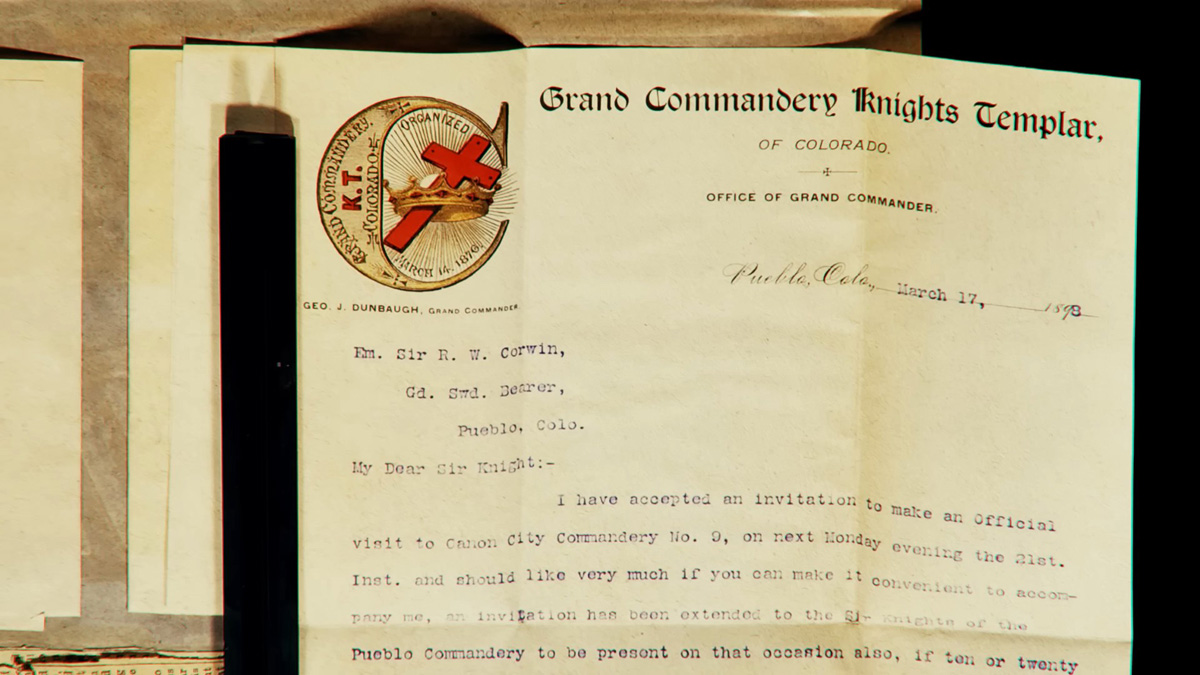 Grand Commandery Knights Templar,
OF COLORADO.
OFFICE OF GRAND COMMANDER.
GRAND COMMANDERY,
K.T.
COLORADO
ORGANIZED
MARCH 14, 1876.
GEO. J. DUNBAUGH, GRAND COMMANDER.
Pueblo, Colo., March 17, 1898
Em. Sir R. W. Corwin,
Gd. Swd. Bearer,
Pueblo, Colo.
My Dear Sir Knight:-
I have accepted an invitation to make an Official
visit to Canon City Commandery No. 9, on next Monday evening the 21st.
Inst. and should like very much if you can make it convenient to accom-
pany me, an invitation has been extended to the Sir Knights of the
Pueblo Commandery to be present on that occasion also, if ten or twenty